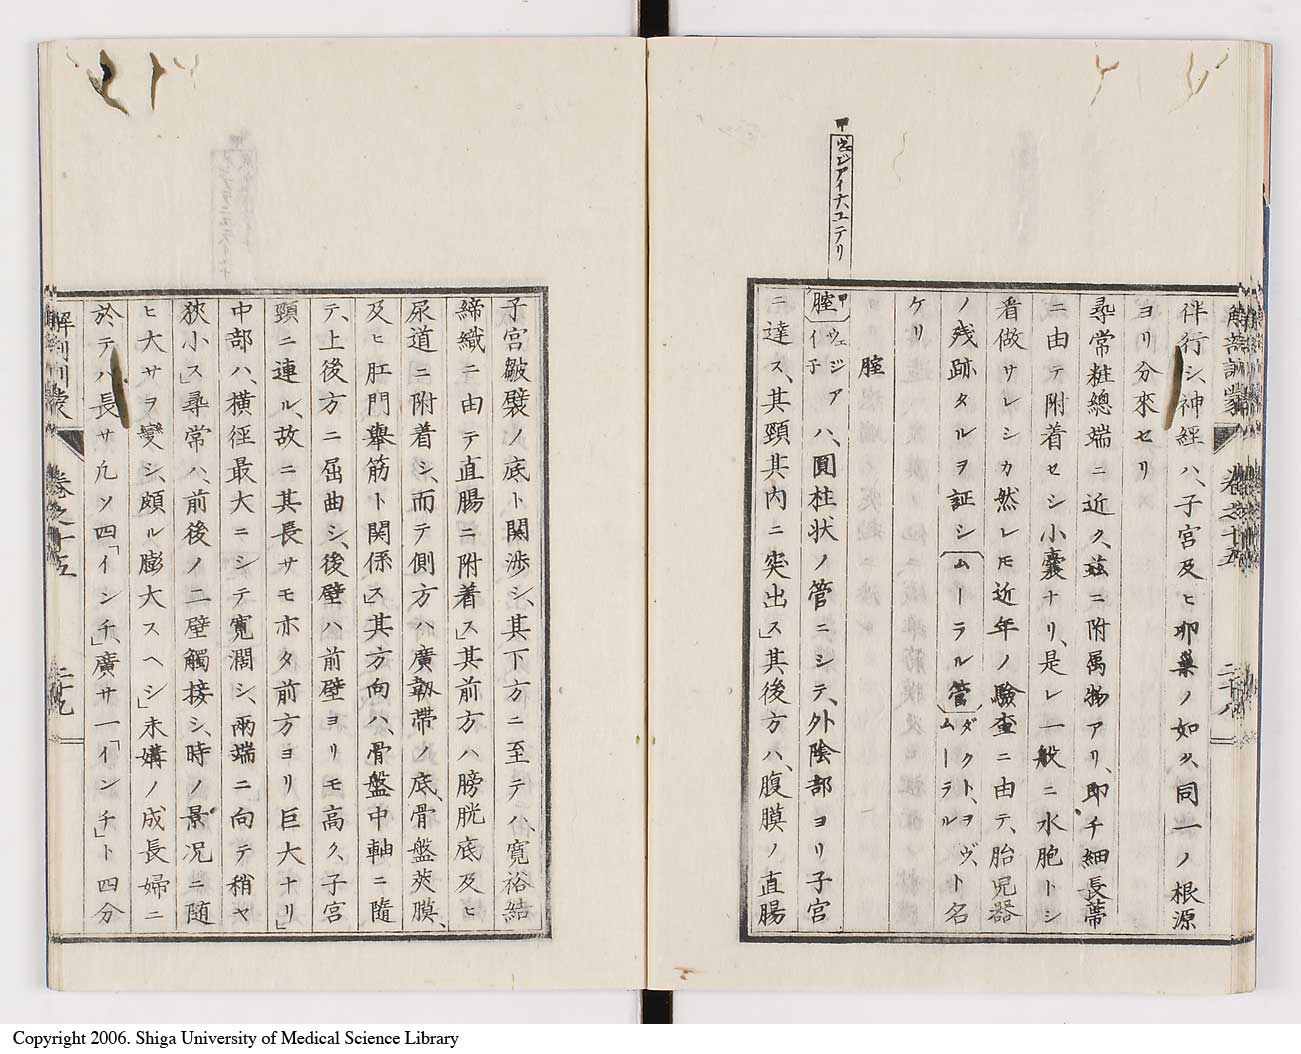 甲ヴェジアイナユテリ
伴行シ、神経ハ、子宮及ヒ卵巣ノ如ク、同一ノ根源
ヨリ分來セリ
尋常粧總端ニ近ク、茲ニ附属物アリ、即チ細長蔕
ニ由テ附着セシ小嚢ナリ、是レ一般ニ水胞トシ
看做サレシカ然レㇳモ近年ノ驗査ニ由テ、胎児器
ノ残跡タルヲ証シ〔ムーラル管〕ダクト、ヲヴ、ムーラルト名
ケリ
腟
〔甲腟〕ウェジアイ子ハ、圓柱状ノ管ニシテ、外陰部ヨリ子宮
ニ達ス、其頸其内ニ突出ス」其後方ハ、腹膜ノ直腸
解剖訓蒙 卷之十五 二十八
子宮皺襞ノ底ト関渉シ、其下方ニ至テハ、寛裕結
締織ニ由テ直腸ニ附着ス」其前方ハ膀胱底及ヒ
尿道ニ附着シ、而テ側方ハ廣靱帯ノ底、骨盤莢膜、
及ヒ肛門擧筋ト関係ス」其方向ハ、骨盤中軸ニ隨
テ、上後方ニ屈曲シ、後壁ハ前壁ヨリモ高ク、子宮
頸ニ連ル、故ニ其長サモ亦タ前方ヨリ巨大ナリ」
中部ハ、横徑最大ニシテ寛濶シ、兩端ニ向テ稍ヤ
狹小ス」尋常ハ、前後ノ二壁觸接シ、時ノ景况ニ随
ヒ大サヲ變シ、頗ル膨大スヘシ」未媾ノ成長婦ニ
於テハ長サ凢ソ四「インチ」廣サ一「インチ」ト四分
解剖訓蒙 卷之十五 二十九
Copyright 2006. Shiga University of Medical Science Library